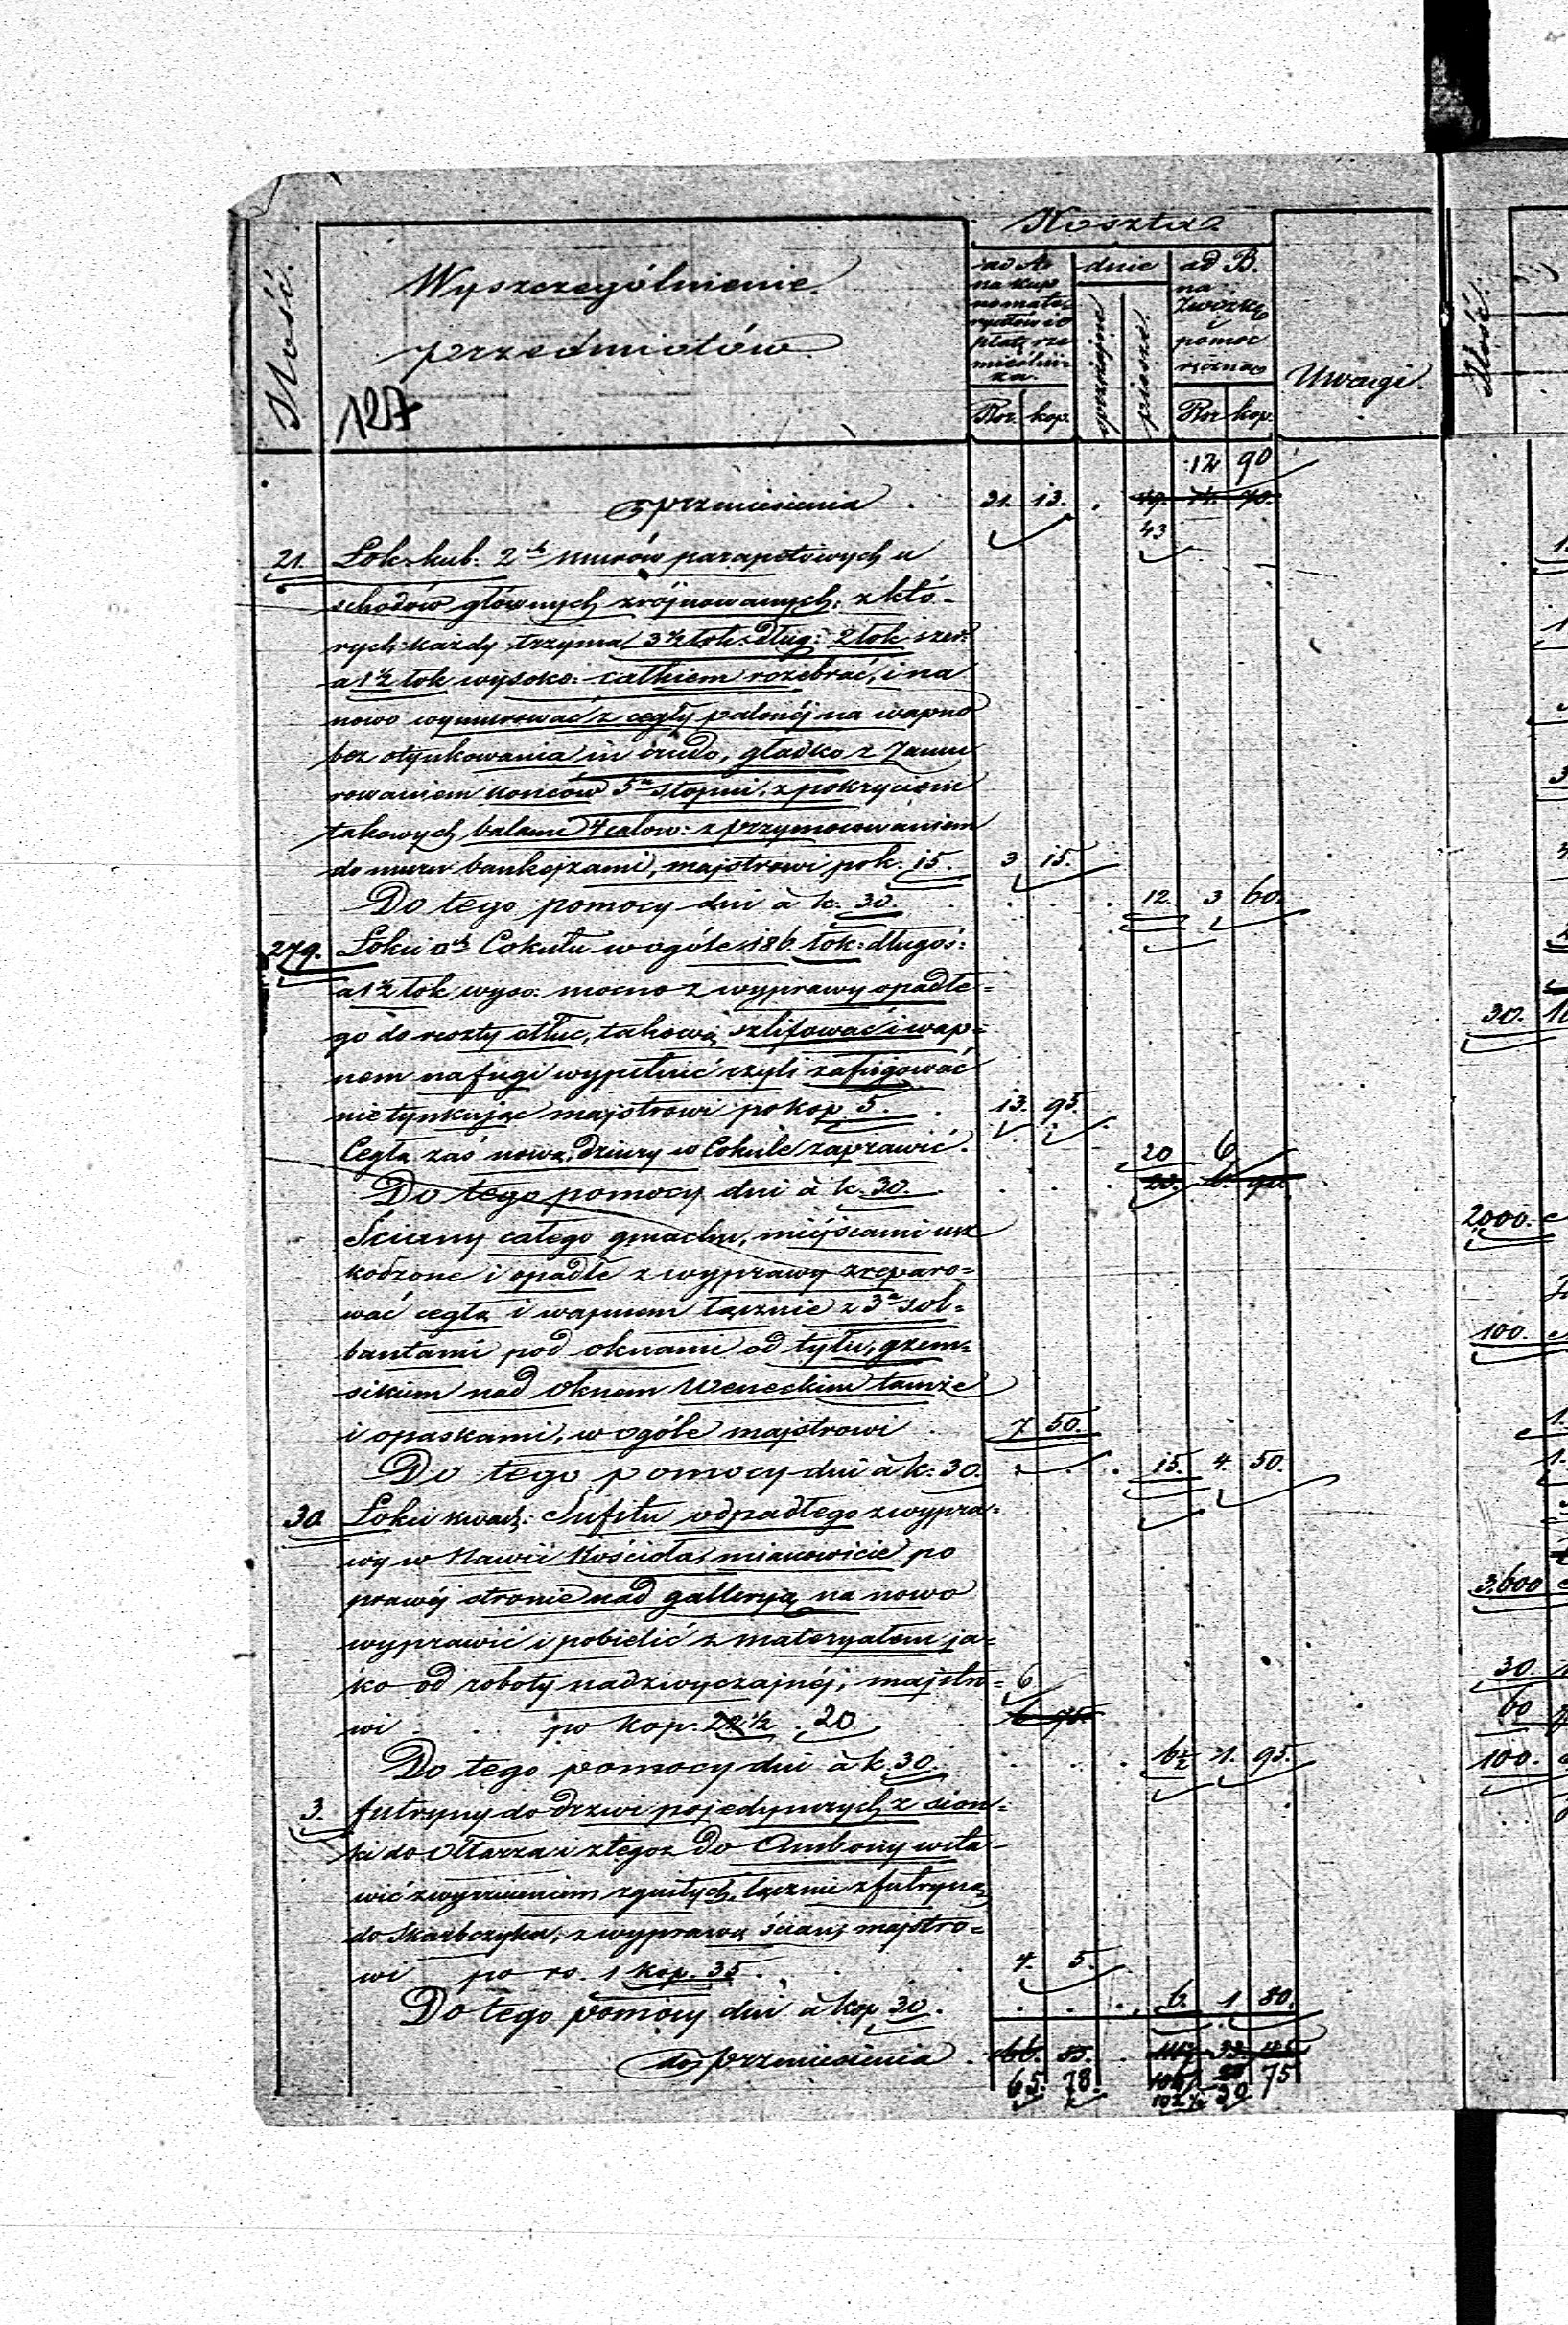 Ilość.
Wyszczególnienie
przedmiotów
127
Koszta
ad A.
na kup
no mate
ryałów i o
płatę rze
mieślni-
za.
dnie
sprzężajne
piesze.
ad B.
na
zwózkę
i
pomoc
ręczną
Uwagi.
Rsr. kop. Rsr kop.
12 90
z przeniesienia . 31. 13. .
43
21. Łok: kub: 2ch murów parapetowych u
schodów głównych zrójnowanych, z któ-
rych każdy trzyma 3½ łok: dług: 2 łok szer:
a 1½ łok wysoko: całkiem rozebrać, i na
nowo wymurować z cegły palonéj na wapno
bez otynkowania in crudo, gładko z zamu
rowaniem końców 5u stopni, z pokryciem
takowych balami 4 calow: z przymocowaniem
do muru bankajzami, majstrowi po k. 15. 3 15.
Do tego pomocy dni à k. 30. . . . 12. 3 60.
279. Łokci Cokułu w ogóle 186. łok: długoś:
a 1½ łok wyso: mocno z wyprawy opadłe-
go do reszty otłuc, takową szlifować i wap-
nem na fugi wypełnić czyli zafugować
nie tynkując majstrowi po kop. 5. . 13. 95.
Cegłą zaś nową, dziury w Cokule zaprawić.
20 6
Do tego pomocy dni à k. 30. . . .
Ściany całego gmachu, miéjscami usz
kodzone i opadłe z wyprawy zreparo-
wać cegłą i wapnem łącznie z 3a sol-
bantami pod oknami od tyłu, gzem-
sikiem nad oknem Weneckim tamże
i opaskami, w ogóle majstrowi . 7 50.
Do tego pomocy dni à k: 30. . . . 15. 4. 50.
30. Łokci kwad: Sufitu odpadłego z wypra-
wy w Nawii Kościoła, mianowicie po
prawéj stronie nad galleryą na nowo
wyprawić i pobielić z materyałem ja-
ko od roboty nadzwyczajnéj, majstro- 6
wi . . po kop. 22½ . 20
Do tego pomocy dni à k. 30. . . . 6½ 1. 95.
3. futryny do drzwi pojedynczych z sion-
ki do Ołtarza i z tegoż do Ambony wsta-
wić z wyrzuceniem zgniłych, łącznie z futryną
do Skarbczyka, z wyprawą ścian, majstro-
wi po rs. 1 kop. 35. . . 4. 5.
Do tego pomocy dni à kop 30. . . . 6. 1 80.
do przeniesienia . 66. 85.
65. 78. 102½ 32 75
Ilość.
30.
2000.
100.
3,600
30.
60
100.